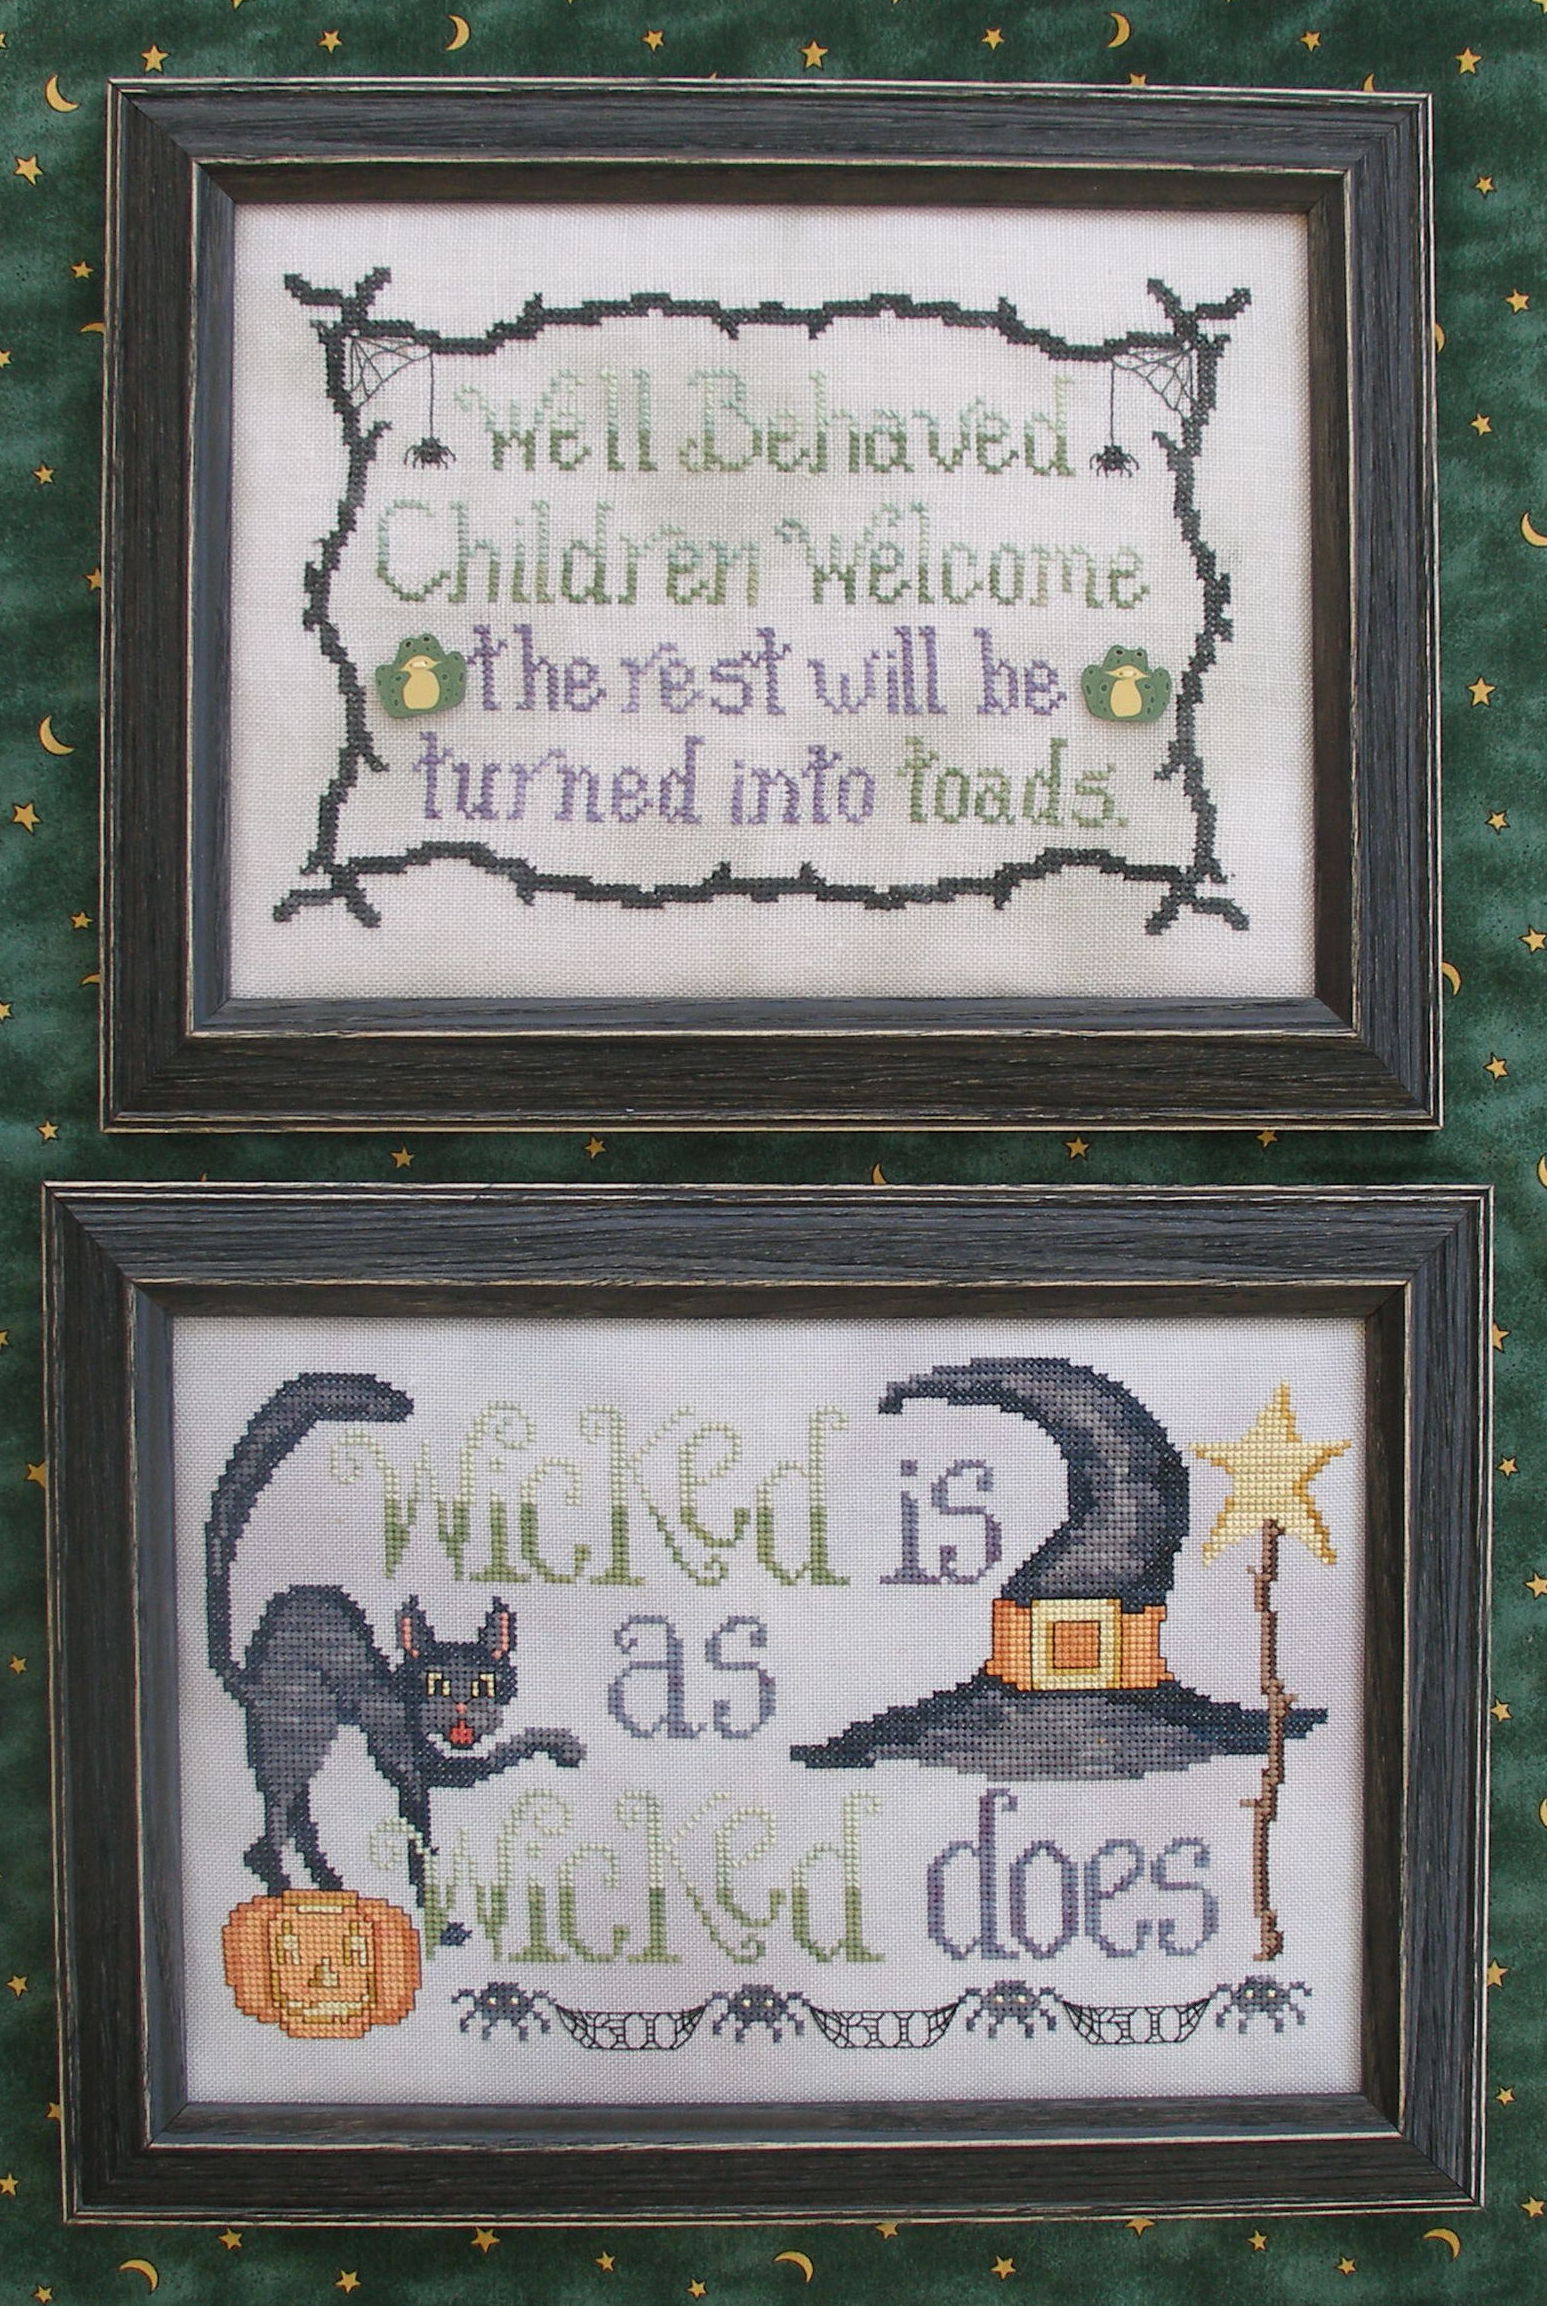 Well Behaved
Children Welcome
the rest will be
turned into toads.
Wicked is
as
Wicked does